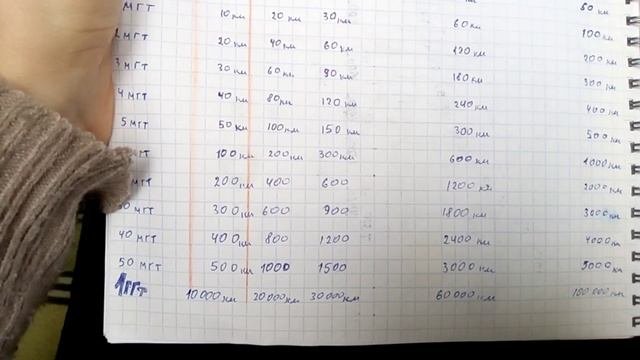 МГТ 10 км 20 км 30 км 60 км 50 км
МГТ 20 км 40 км 60 км 120 км 100 км
3 МГТ 30 км 60 км 90 км 180 км 200 км
4 МГТ 40 км 80 км 120 км 240 км 300 км
5 МГТ 50 км 100 км 150 км 300 км 400 км
МГТ 100 км 200 км 300 км 600 км 500 км
МГТ 200 км 400 600 1200 км 1000 км
МГТ 300 км 600 900 1800 км 2000 км
40 МГТ 400 км 800 1200 2400 км 3000 км
50 МГТ 500 км 1000 1500 3000 км 4000 км
5000 км
1 ГГТ 10 000 км 20 000 км 30 000 км 60 000 км 100 000 км